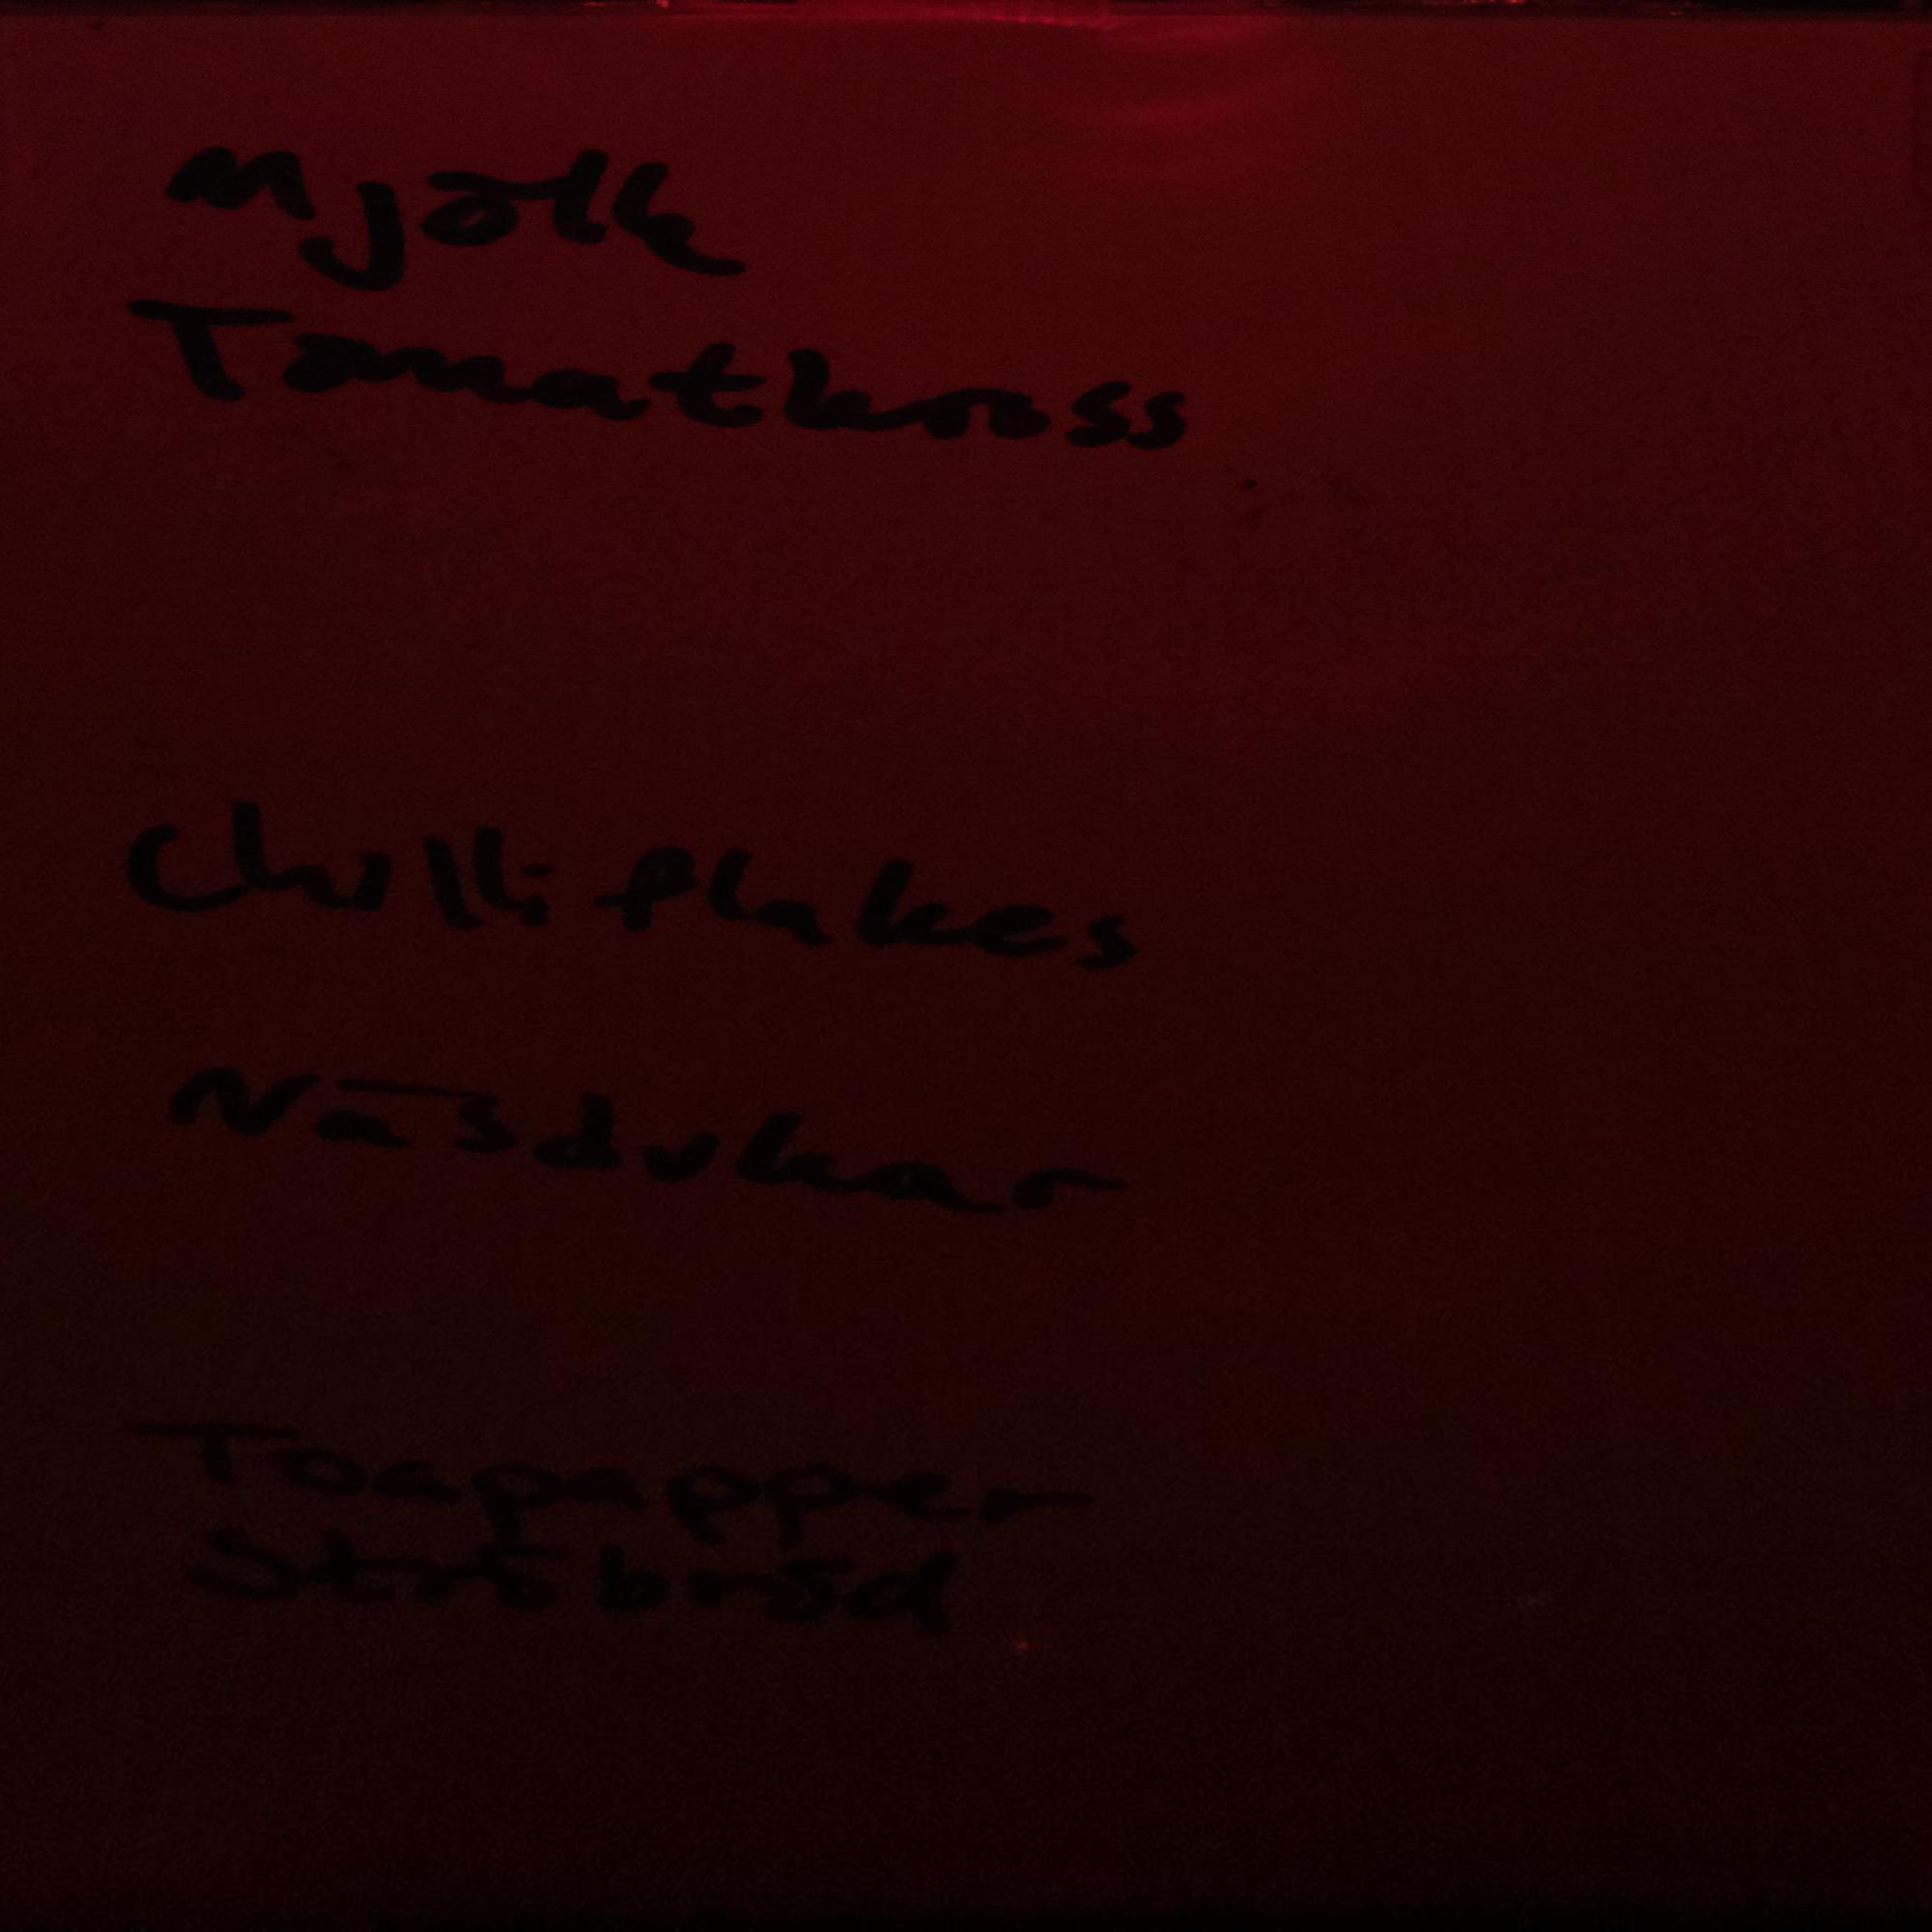 Mjölk
Tomatkross
Chilliflakes
Näsdukar
Toapapper
Ströbröd